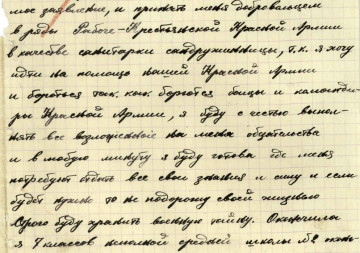 мое заявление, и принять меня добровольцем
в ряды Рабоче-Крестьянской Красной Армии
в качестве санитарки сандружинницы, т.к. я хочу
идти на помощь нашей Красной Армии
и бороться так как борются бойцы и команди-
ры Красной Армии, я буду с честью выпол-
нять все возложенные на меня обязательства
и в любую минуту я буду готова где меня
потребуют отдать все свои знания и силу и если
будет нужно то не подорожу своей жизнью
Строго буду хранить военную тайну. Окончила
я 7 классов неполной средней школы №2 окон-